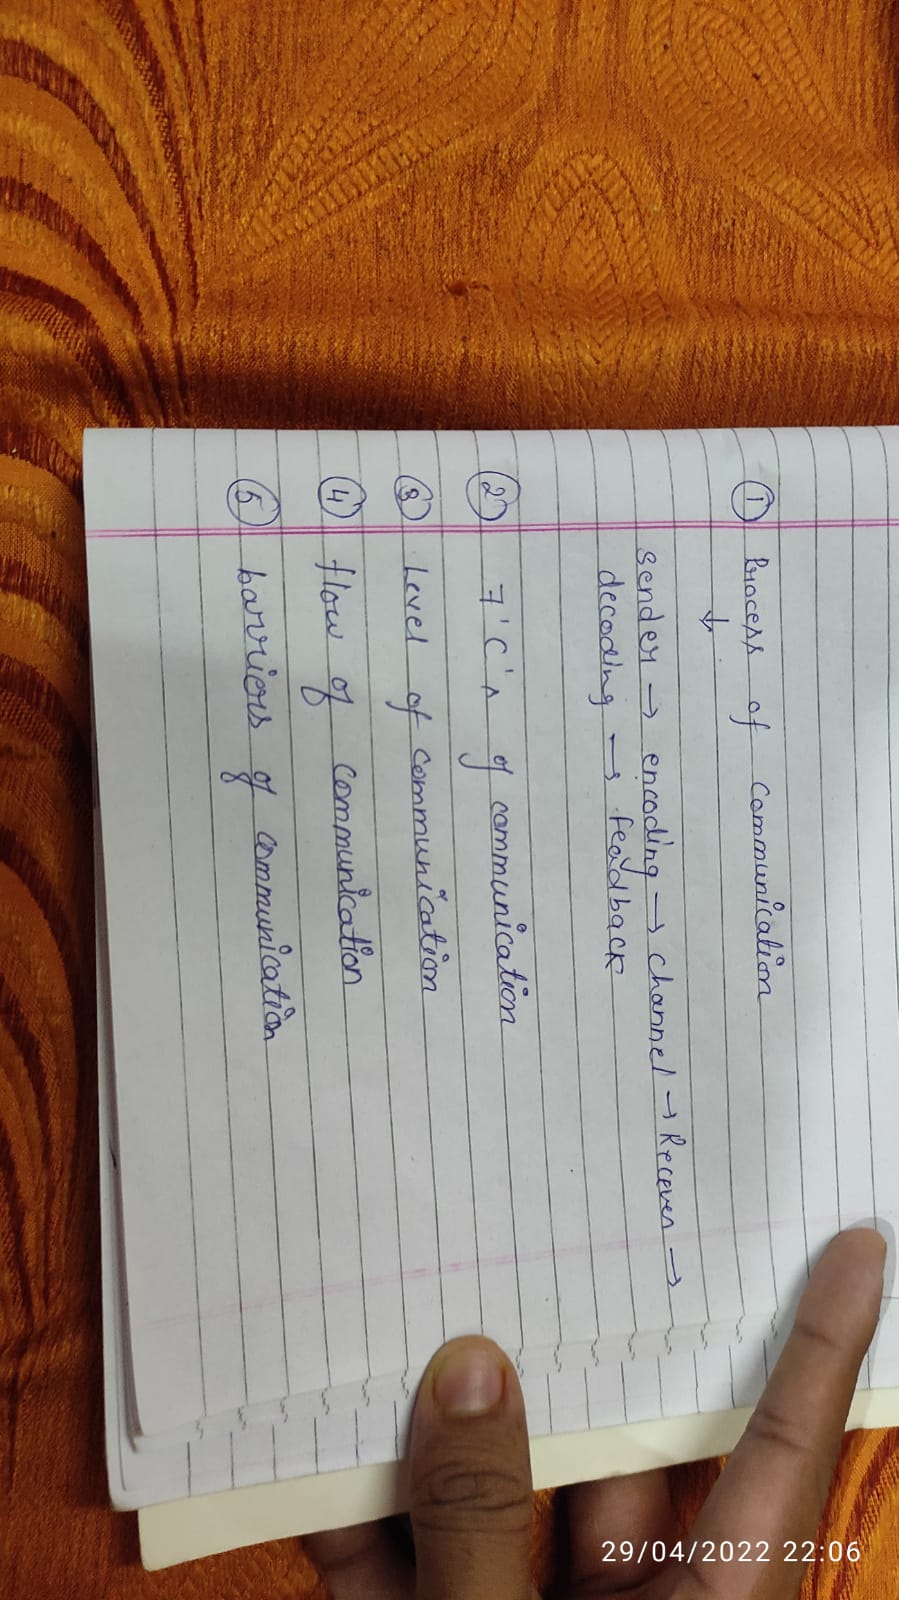 ① Process of Communication
↓
sender → encoding → channel → Recever →
decoding → feedback
② 7'C's of communication
③ Level of communication
④ flow of communication
⑤ barriers of communication
29/04/2022 22:06